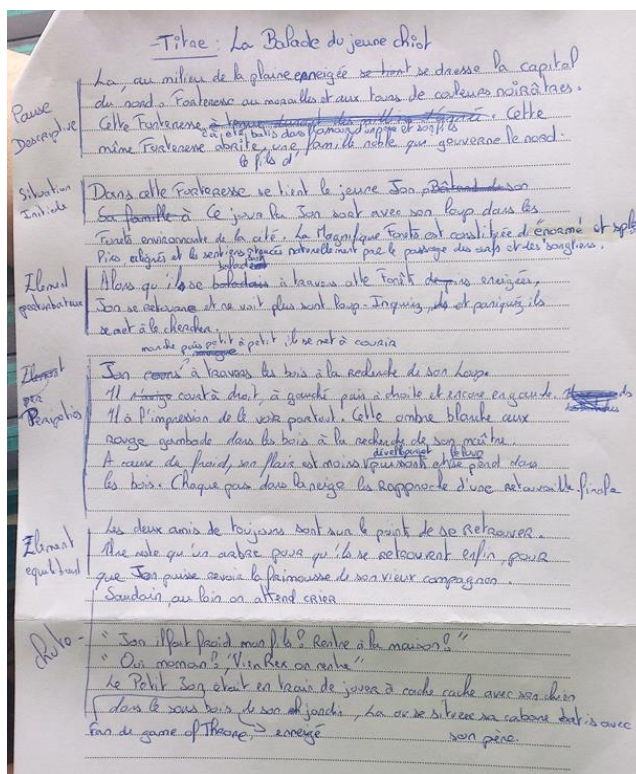 -Titre : La Balade du jeune chiot
Pause Descriptive
La, au milieu de la plaine enneigée se tient se dresse la capital
du nord. Forteresse au murailles et aux tours de couleurs noirâtres.
Cette Forteresse à été batis dans par et son fils. Cette
même Forteresse abrite une famille noble que gouverne le nord.
le fils d'
Situation Initiale
Dans cette Forteresse se tient le jeune Jon Bâtard de son
Sa famille à Ce jour la Jon sort avec son loup dans les
Forets environnante de la cité. La Magnifique Forêts est constituée d'énormé et
Pins enneigés et les sentiers tracés naturellement par le passage des cerfs et des sangliers.
Element pertubateur
Alors qu'ils se baladais à travers cette Forêt de pins enneigées,
Jon se retourne et ne voit plus sont loup. Inquiez, et paniquéz ils
se met à le chercher.
marche puis petit à petit, il se met à courir
Element per Peripeties
Jon cours à travers les bois à la recherche de son Loup.
Il court à droit, à gauche puis à droite et encore en gauche.
Il à l'impression de le voir partout. Cette ombre blanche aux
rouge gambade dans les bois à la recherche de son maître.
A cause du froid, son flair est moins puissant et se perd dans
les bois. Chaque pas dans la neige les Rapproche d'une retrouvaille finale
Element equilibrant
Les deux amis de toujours sont sur le point de se Retrouver.
Il ne reste qu'un arbre pour qu'ils se retrouvent enfin, pour
que Jon puisse revoir la frimousse de son vieux compagnon.
Soudain, au loin on attend crier
chute -
" Jon il fait froid mon fils ! Rentre à la maison ! "
" Oui maman ! Vien Rex on rentre "
Le Petit Jon etait en train de jouer à cache cache avec son chien
dans le sous bois de son jardin, La ou se sitvee sa cabane batis avec
Fan de game of Throne, enneigé son père.